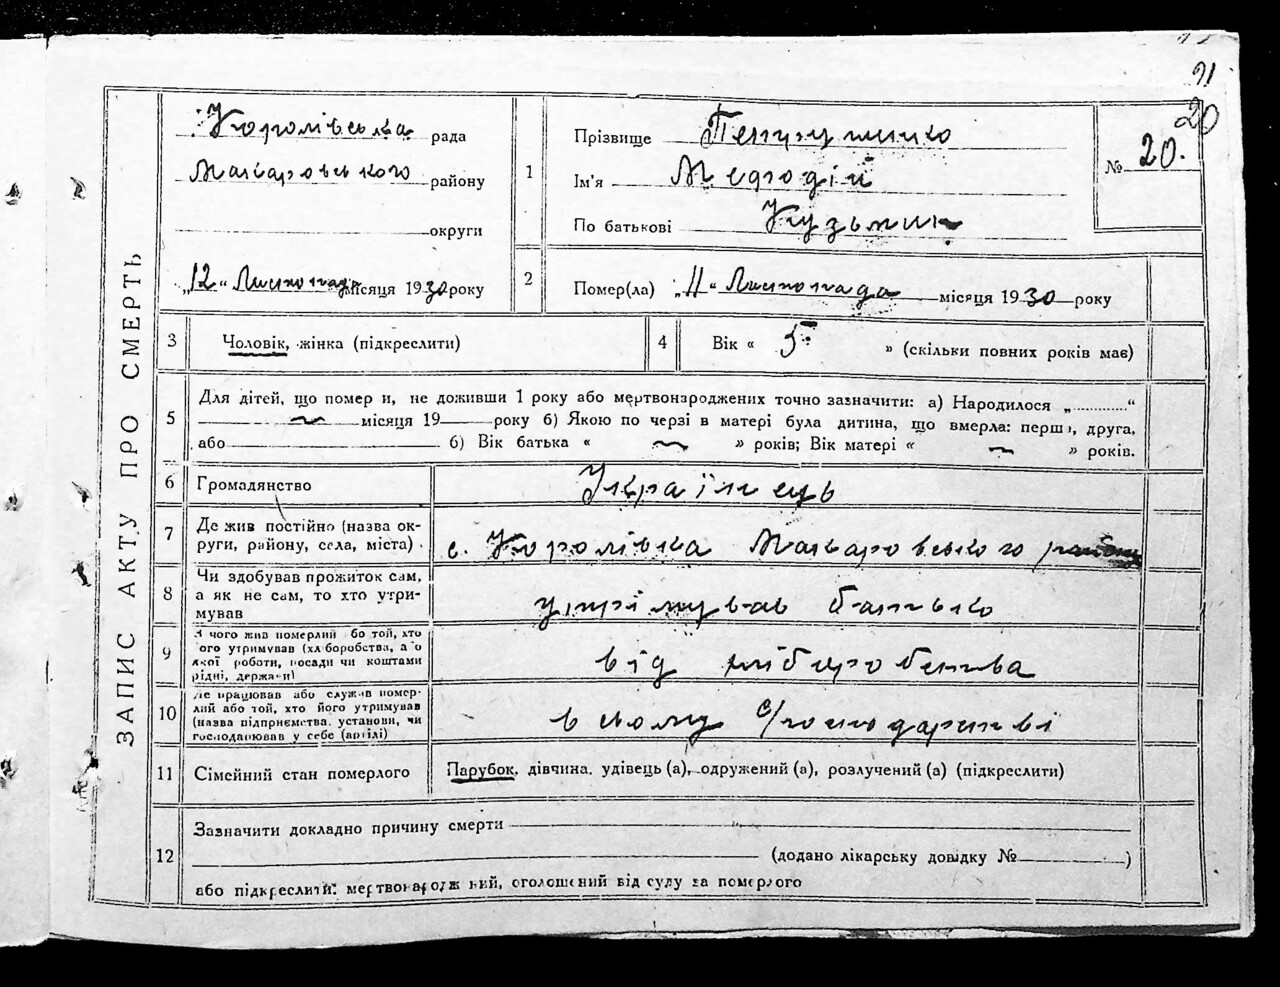 21
20
ЗАПИС АКТУ ПРО СМЕРТЬ
Королівська рада
Макаровського району
округи
„12“ Листопада місяця 1930 року
1
Прізвище
Ім'я Мефодій
По батькові Кузьмич
№ 20.
2
Помер(ла) „11“ Листопада місяця 1930 року
3
Чоловік, жінка (підкреслити)
4
Вік « 5 » (скільки повних років має)
5
Для дітей, що померли, не доживши 1 року або мертвонароджених точно зазначити: а) Народилося „............“
місяця 19 року б) Якою по черзі в матері була дитина, що вмерла: перша, друга,
або б) Вік батька « » років; Вік матері « » років.
6
Громадянство
Українець
7
Де жив постійно (назва ок-
руги, району, села, міста)
с. Королівка Макаровського району
8
Чи здобував прожиток сам,
а як не сам, то хто утри-
мував
утрімував батько
9
З чого жив померлий або той, хто
його утримував (хліборобства, або
якої роботи, посади чи коштами
рідні, держави)
від хліборобства
10
Де працював або служив помер-
лий або той, хто його утримував
(назва підприємства, установи, чи
господарював у себе (артілі)
в сьому с/господарстві
11
Сімейний стан померлого
Парубок, дівчина, удівець (а), одружений (а), розлучений (а) (підкреслити)
12
Зазначити докладно причину смерти
(додано лікарську довідку № )
або підкреслити: мертвонароджений, оголошений від суду за померлого